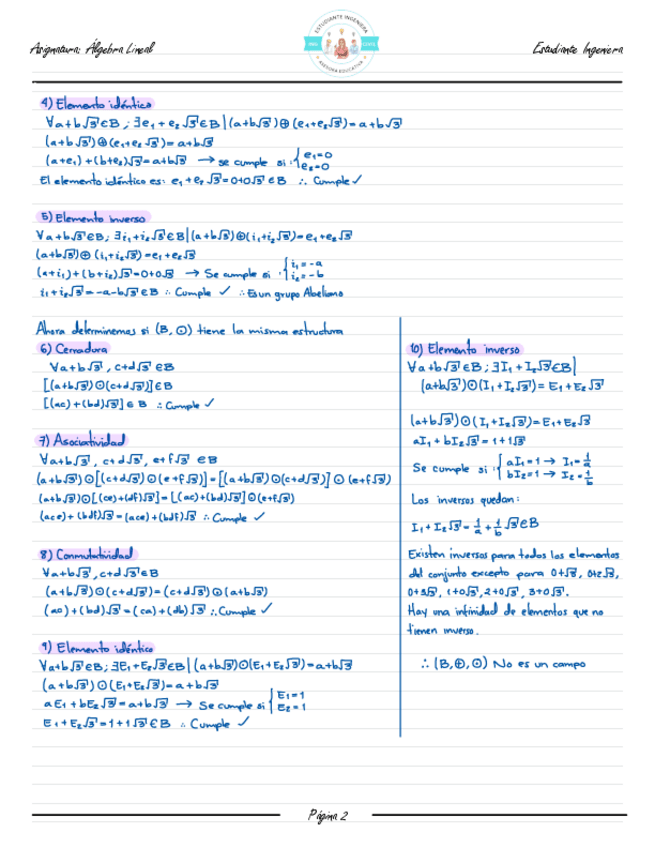 Asignatura: Álgebra Lineal
ESTUDIANTE INGENIERA
ASESORA EDUCATIVA
Estudiante Ingeniera
4) Elemento idéntico
∀a+b√3 ∈B ; ∃e₁+e₂√3 ∈B | (a+b√3)⊕(e₁+e₂√3)=a+b√3
(a+b√3)⊕(e₁+e₂√3)=a+b√3
(a+e₁)+(b+e₂)√3=a+b√3 → se cumple si { e₁=0
e₂=0
El elemento idéntico es: e₁+e₂√3=0+0√3 ∈B ∴ Cumple ✓
5) Elemento inverso
∀a+b√3 ∈B; ∃i₁+i₂√3 ∈B | (a+b√3)⊕(i₁+i₂√3)=e₁+e₂√3
(a+b√3)⊕(i₁+i₂√3)=e₁+e₂√3
(a+i₁)+(b+i₂)√3=0+0√3 → Se cumple si { i₁=-a
i₂=-b
i₁+i₂√3=-a-b√3 ∈B ∴ Cumple ✓ ∴ Es un grupo Abeliano
Ahora determinemos si (B, ⊙) tiene la misma estructura
6) Cerradura
∀a+b√3, c+d√3 ∈B
[(a+b√3)⊙(c+d√3)] ∈B
[(ac)+(bd)√3] ∈ B ∴ Cumple ✓
7) Asociatividad
∀a+b√3, c+d√3, e+f√3 ∈B
(a+b√3)⊙[(c+d√3)⊙(e+f√3)]=[(a+b√3)⊙(c+d√3)]⊙(e+f√3)
(a+b√3)⊙[(ce)+(df)√3]=[(ac)+(bd)√3]⊙(e+f√3)
(ace)+(bdf)√3=(ace)+(bdf)√3 ∴ Cumple ✓
8) Conmutatividad
∀a+b√3, c+d√3 ∈B
(a+b√3)⊙(c+d√3)=(c+d√3)⊙(a+b√3)
(ac)+(bd)√3=(ca)+(db)√3 ∴ Cumple ✓
9) Elemento idéntico
∀a+b√3 ∈B; ∃E₁+E₂√3 ∈B | (a+b√3)⊙(E₁+E₂√3)=a+b√3
(a+b√3)⊙(E₁+E₂√3)=a+b√3
aE₁+bE₂√3=a+b√3 → Se cumple si { E₁=1
E₂=1
E₁+E₂√3=1+1√3 ∈B ∴ Cumple ✓
10) Elemento inverso
∀a+b√3 ∈B; ∃I₁+I₂√3 ∈B |
(a+b√3)⊙(I₁+I₂√3)=E₁+E₂√3
(a+b√3)⊙(I₁+I₂√3)=E₁+E₂√3
aI₁+bI₂√3=1+1√3
Se cumple si { aI₁=1 → I₁=1/a
bI₂=1 → I₂=1/b
Los inversos quedan:
I₁+I₂√3=1/a+1/b √3 ∈B
Existen inversos para todos los elementos
del conjunto excepto para 0+√3, 0+2√3,
0+3√3, 1+0√3, 2+0√3, 3+0√3.
Hay una infinidad de elementos que no
tienen inverso.
∴ (B,⊕,⊙) No es un campo
Página 2